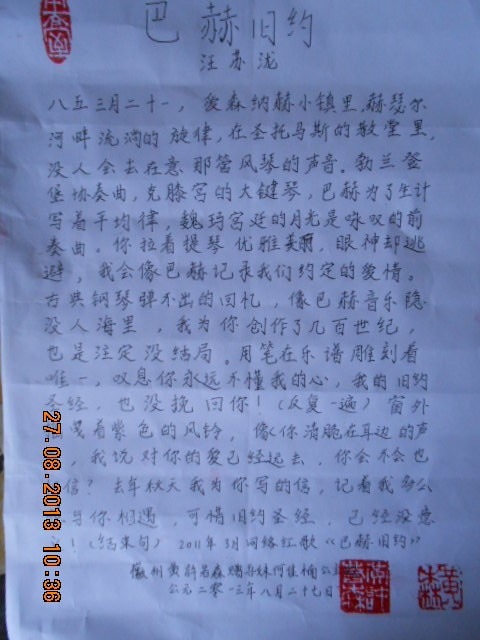 巴赫旧约
汪苏泷
八五三月二十一，爱森纳赫小镇里，赫瑟尔
河畔流淌的旋律，在圣托马斯的教堂里，
没人会去在意那管风琴的声音。勃兰登
堡协奏曲，克滕宫的大键琴，巴赫为了生计
写着平均律，魏玛宫廷的月光是咏叹的前
奏曲。你拉着提琴优雅美丽，眼神却逃
避，我会像巴赫记录我们约定的爱情。
古典钢琴弹不出的回忆，像巴赫音乐隐
没人海里，我为你创作了几百世纪，
也是注定没结局。用笔在乐谱雕刻着
唯一，叹息你永远不懂我的心，我的旧约
圣经，也没挽回你！（反复一遍）窗外
着紫色的风铃，像你清脆在耳边的声
，我说对你的爱已经远去，你会不会也
信？去年秋天我为你写的信，记着我多么
与你相遇，可惜旧约圣经，已经没意
！（结束句）2011年3月网络红歌《巴赫旧约》
徽州黄
公元二零一三年八月二十七日
27.08.2013 10:36